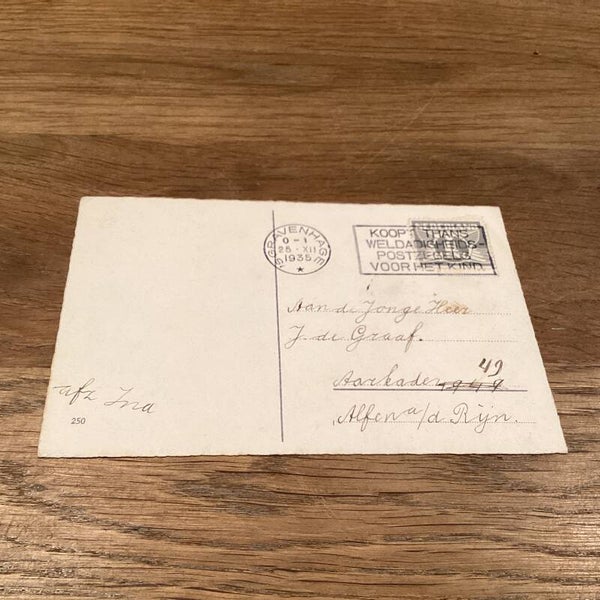 'S GRAVENHAGE
0-1
28·XII
1935
KOOPT THANS
WELDADIGHEIDS-
POSTZEGELS
VOOR HET KIND
Aan de Jonge Heer
J. de Graaf.
49
Aarkade
Alfen a/d Rijn.
afz Ina
250